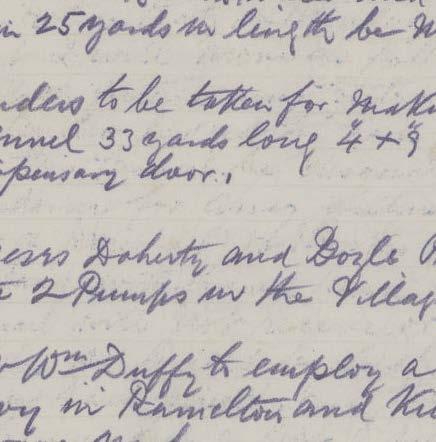 in 25 yards in length be
nders to be taken for Maki
nnel 33 yards long 4" x 9"
spensary door.
essrs Doherty and Boyle
2 Pumps in the Villag
Wm Duffy to employ a
in Hamelton and